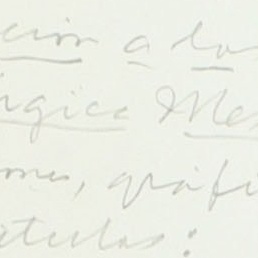 cion a los
rgica Mex
ones, gráfi
atulas: